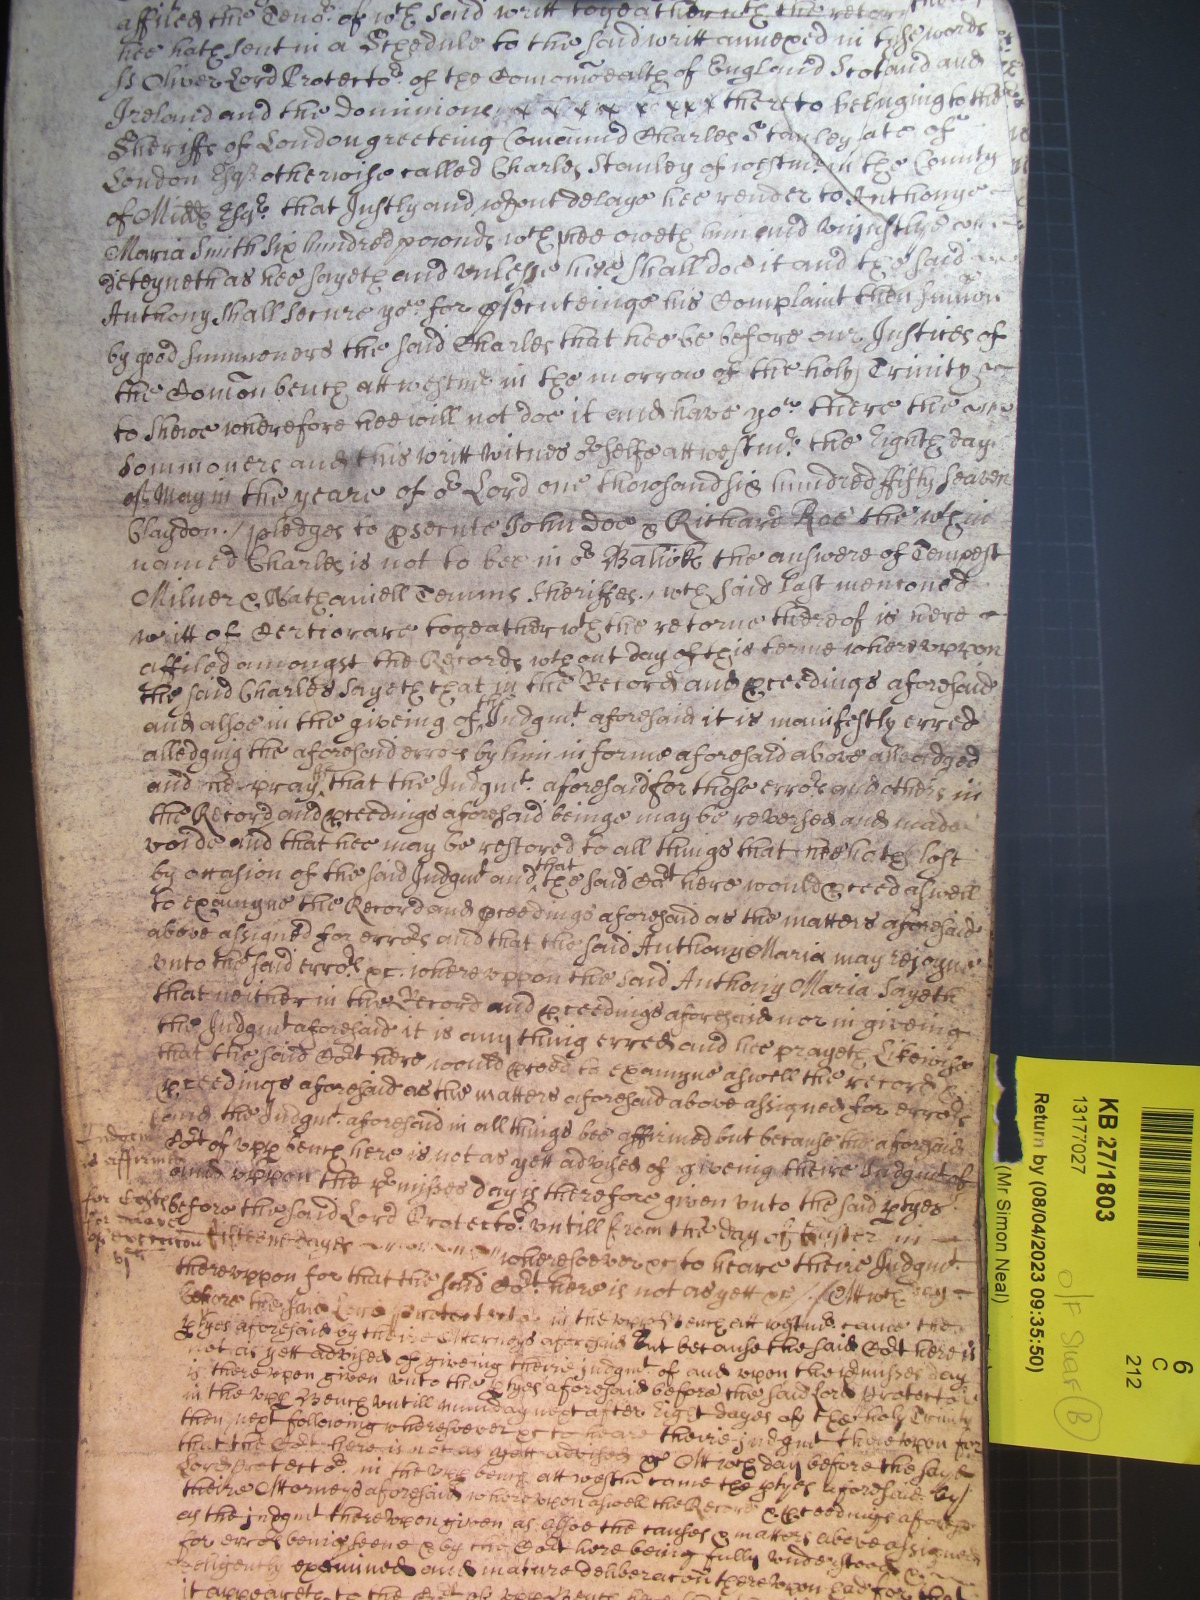 affiled the Teno.r of w.ch said writt togeather w.th the retorn
hee hath sent in a Schedule to the said writt annexed in these words
ss Oliver Lord Protecto.r of the Comonwealth of England Scotland and
Ireland and the dominions x x x x x x x x thereto belonging to the
Sheriffs of London greeteing Comaund Charles Stanley late of
London Esq.r otherwise called Charles Stanley of westm.r in the County
of Midd Esq.r that Justly and w.thout delaye hee render to Anthonye
Maria Smith Six hundred pounds w.ch hee oweth him and Uniustlye
deteyneth as hee sayeth and unlesse hee shall doe it and the said
Anthony shall secure yo.u for psecuteinge his Complaint then sumon
by good summoners the said Charles that hee be before our Justices of
the Comon bench att westm.r in the morrow of the holy Trinity
to shewe wherefore hee will not doe it and have yo.u there the
sommoners and this writt witnes o.r selfe att westm.r the Eight day
of May in the yeare of o.r Lord one thowsand six hundred fifty seaven
Glaydon / pledges to psecute John Doe & Richard Roe the w.thin
named Charles is not to bee in o.r Baliwk the answere of Tempest
Milner & Nathaniell Temms Sheriffes, w.ch said last mentoned
writt of Certiorare togeather w.th the retorne thereof is here
affiled amongst the Records w.thout day of this terme whereuppon
the said Charles Sayeth that in the Record and pceedings aforesaid
and alsoe in the giveing of the Judgm.t aforesaid it is manifestly erred
alledging the aforesaid erro.rs by him in forme aforesaid above alleadged
and he prays that the Judgm.t aforesaid for those erro.rs and others in
the Record and pceedings aforesaid beinge may be reversed and made
voide and that hee may be restored to all things that hee hath lost
by occasion of the said Judgm.t and that the said Co.rt here would pceed aswell
to examyne the Record and pceedings aforesaid as the matters aforesaid
above assigned for erro.rs and that the said Anthony Maria may rejoyne
unto the said erro.rs &c. whereuppon the said Anthony Maria Sayeth
that neither in the Record and pceedings aforesaid nor in giveing
the Judgm.t aforesaid it is any thing erred and hee prayeth Likewise
that the said Co.rt here would pceed to examyne aswell the record &
pceedings aforesaid as the matters aforesaid above assigned for erro.rs
and the Judgm.t aforesaid in all things bee affirmed but because the aforesaid
Judgem.t
is affirmed
Co.rt of upp bench here is not as yett advised of giveing theire Judgm.t of
and uppon the p.rmisses day is therefore given unto the said ptyes
for Costs
before the said Lord Protecto.r untill from the day of Easter in
fifteene dayes wheresoever &c to heare theire Judgm.t
of execucon
thereuppon for that the said Co.rt here is not as yett &c / Att w.ch day
before the said Lord Protector in the upp bench att westm.r came the
ptyes aforesaid by theire Attorneys aforesaid But because the said Co.rt here is
not as yett advised of giveing theire judgm.t of and upon the premisses day
is thereupon given unto the ptyes aforesaid before the said Lord Protecto.r
in the upp Bench untill munday next after Eight dayes of the holy Trinity
then next following wheresoever &c to heare theire judgm.t thereupon for
that the Co.rt here is not as yett advised &c Att w.ch day before the sayd
Lord protecto.r in the upp bench att westm.r came the ptyes aforesaid by
theire Attorneys aforesaid whereupon aswell the Record & pceedings aforesd
as the judgm.t thereupon given as alsoe the causes & matters above assigned
for erro.rs being seene & by the Co.rt here being fully understood &
deligently examined and mature deliberacon thereupon had for that
it appeareth to the Co.rt of upp Bench
KB 27/1803
13177027
Return by (08/04/2023 09:35:50)
(Mr Simon Neal)
6
C
212
O/F Shelf B